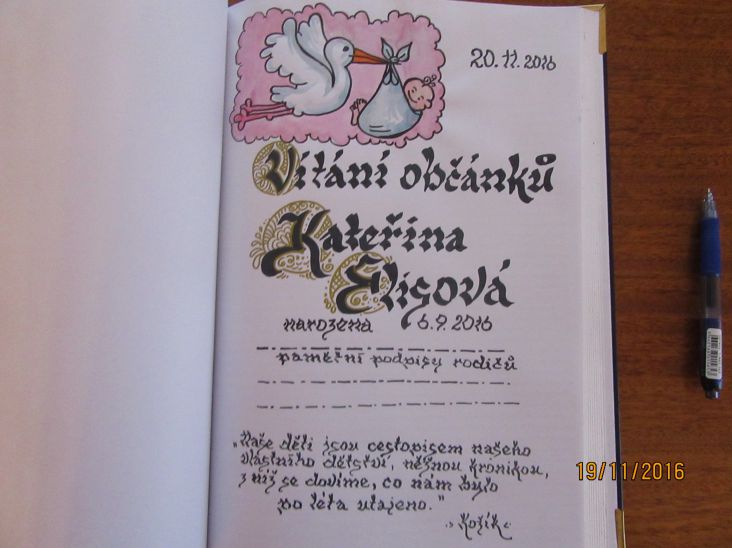 20.11.2016
Vítání občánků
Kateřina
Elisová
narozena 6.9.2016
pamětní podpisy rodičů
„Naše děti jsou cestopisem našeho
vlastního dětství, něžnou kronikou,
z níž se dovíme, co nám bylo
po léta utajeno."
Kožík
19/11/2016